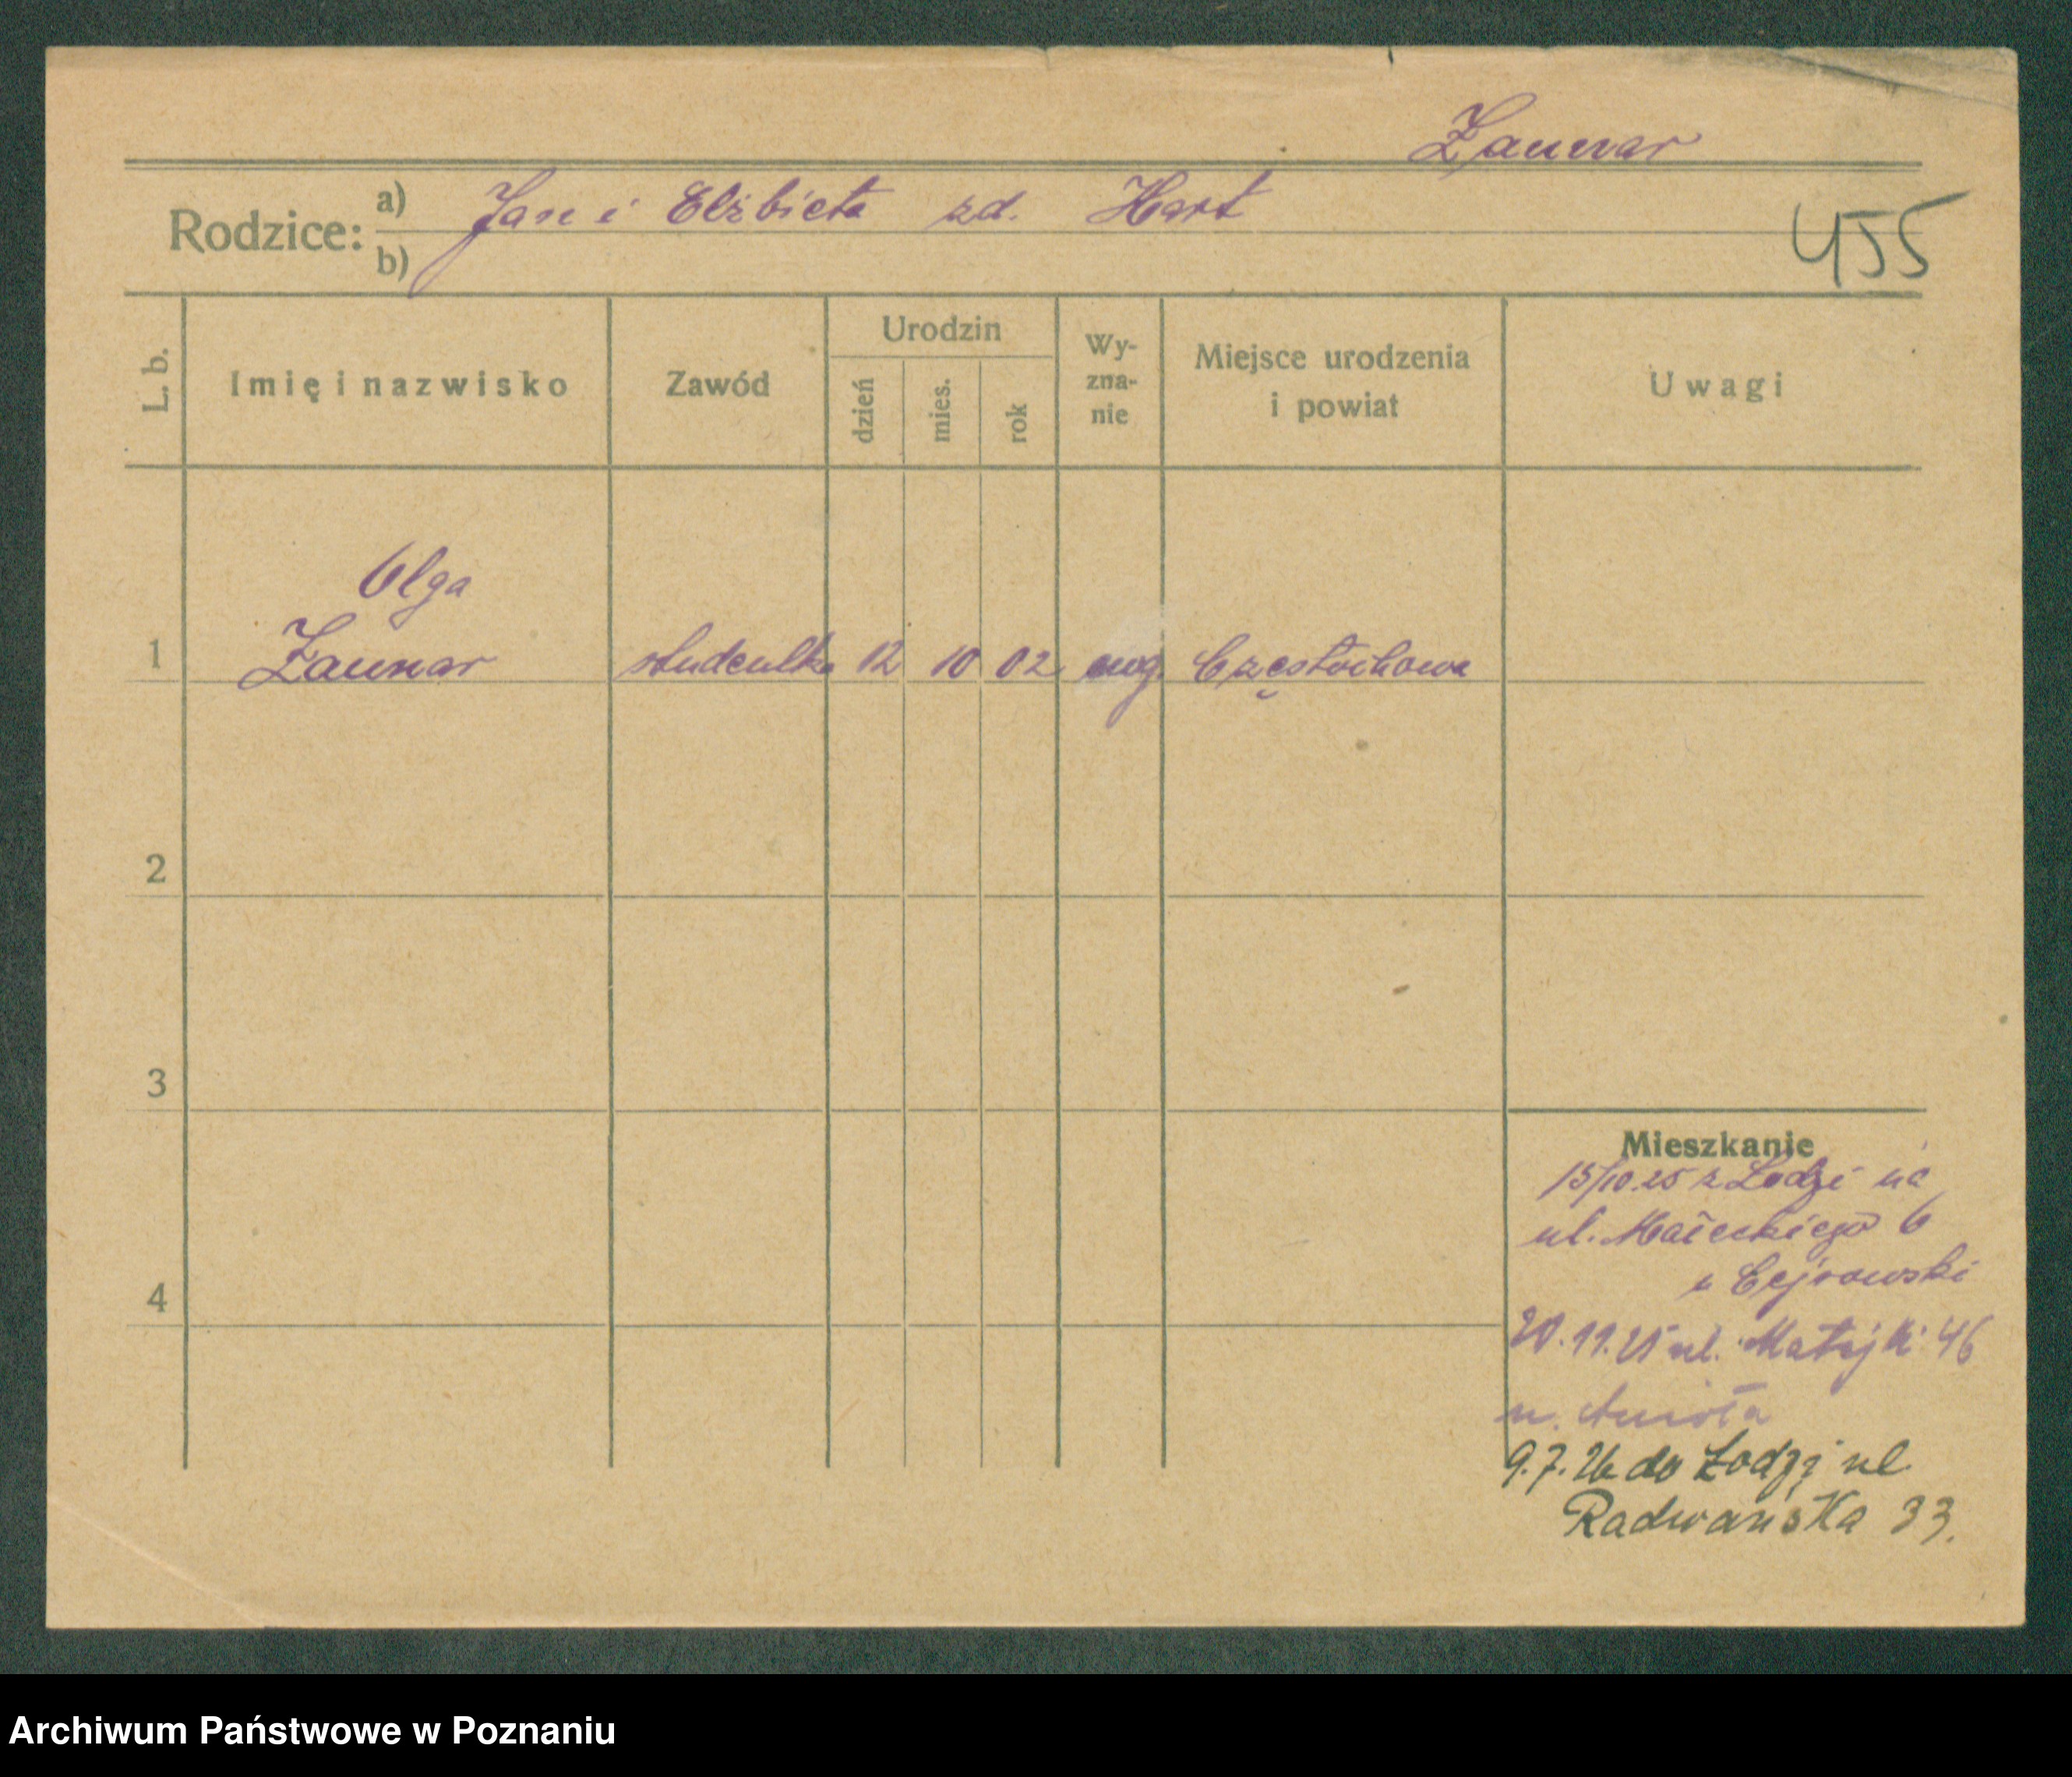 Zaunar
Rodzice: a) Jan i Elżbieta zd. Hart
b)
455
L. b. Imię i nazwisko Zawód Urodzin dzień mies. rok Wyznanie Miejsce urodzenia i powiat Uwagi
Olga
1 Zaunar studentka 12 10 02 ewg. Częstochowa
2
3
4
Mieszkanie
15/10.25 z Lodzi na
ul. Małeckiego 6
u Cejrowski
20.11.25 ul. Matejki 46
u. Anioła
9.7.26 do Łodzi ul
Radwańska 33.
Archiwum Państwowe w Poznaniu